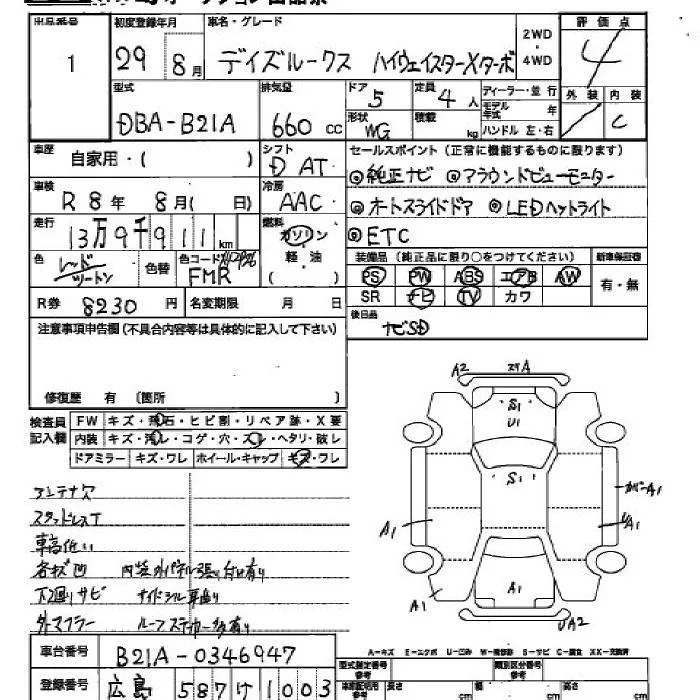 出品番号 1
初度登録年月 29年 8月
車名・グレード デイズルークス ハイウェイスターXターボ 2WD・4WD
評価点 4
外装 内装 C
型式 DBA-B21A
排気量 660 cc
ドア 5
定員 4人
ディーラー・並行
形状 WG
積載 kg
モデル年式 年
ハンドル 左・右
車歴 自家用・( )
シフト D AT
車検 R 8年 8月( 日)
冷房 AAC
走行 13万9千911 km
燃料 ガソリン 軽油 ( )
色 レッド ツートン
色替
色コード FMR
R券 8230円
名変期限 月 日
セールスポイント(正常に機能するものに限ります)
◎純正ナビ ◎アラウンドビューモニター
◎オートスライドドア ◎LEDヘッドライト
◎ETC
装備品(純正品に限り○をつけてください) 新車保証書
PS PW ABS エアB AW 有・無
SR ナビ TV カワ
後日品 ナビSD
注意事項申告欄(不具合内容等は具体的に記入して下さい)
修復歴 有 〔箇所 〕
検査員記入欄
FW キズ・飛石・ヒビ割・リペア跡・X要
内装 キズ・汚レ・コゲ・穴・スレ・ヘタリ・破レ
ドアミラー キズ・ワレ ホイール・キャップ キズ・ワレ
アンテナ欠
スタッドレスT
車高低い
各キズ凹 内装外パネル張り付け有り
下廻りサビ サイドシル耳曲り
外マフラー ルーフステッカー多有り
A2 A
S1
U1
S1
カバーA1
A1
A1
A1
A1
UA2
A=キズ E=エクボ U=凹み W=補修跡 S=サビ C=腐食 XX=交換済
車台番号 B21A-0346947
登録番号 広島 587 け 1003
型式指定番号 参考 類別区分番号 参考
長さ cm 幅 cm 高さ cm